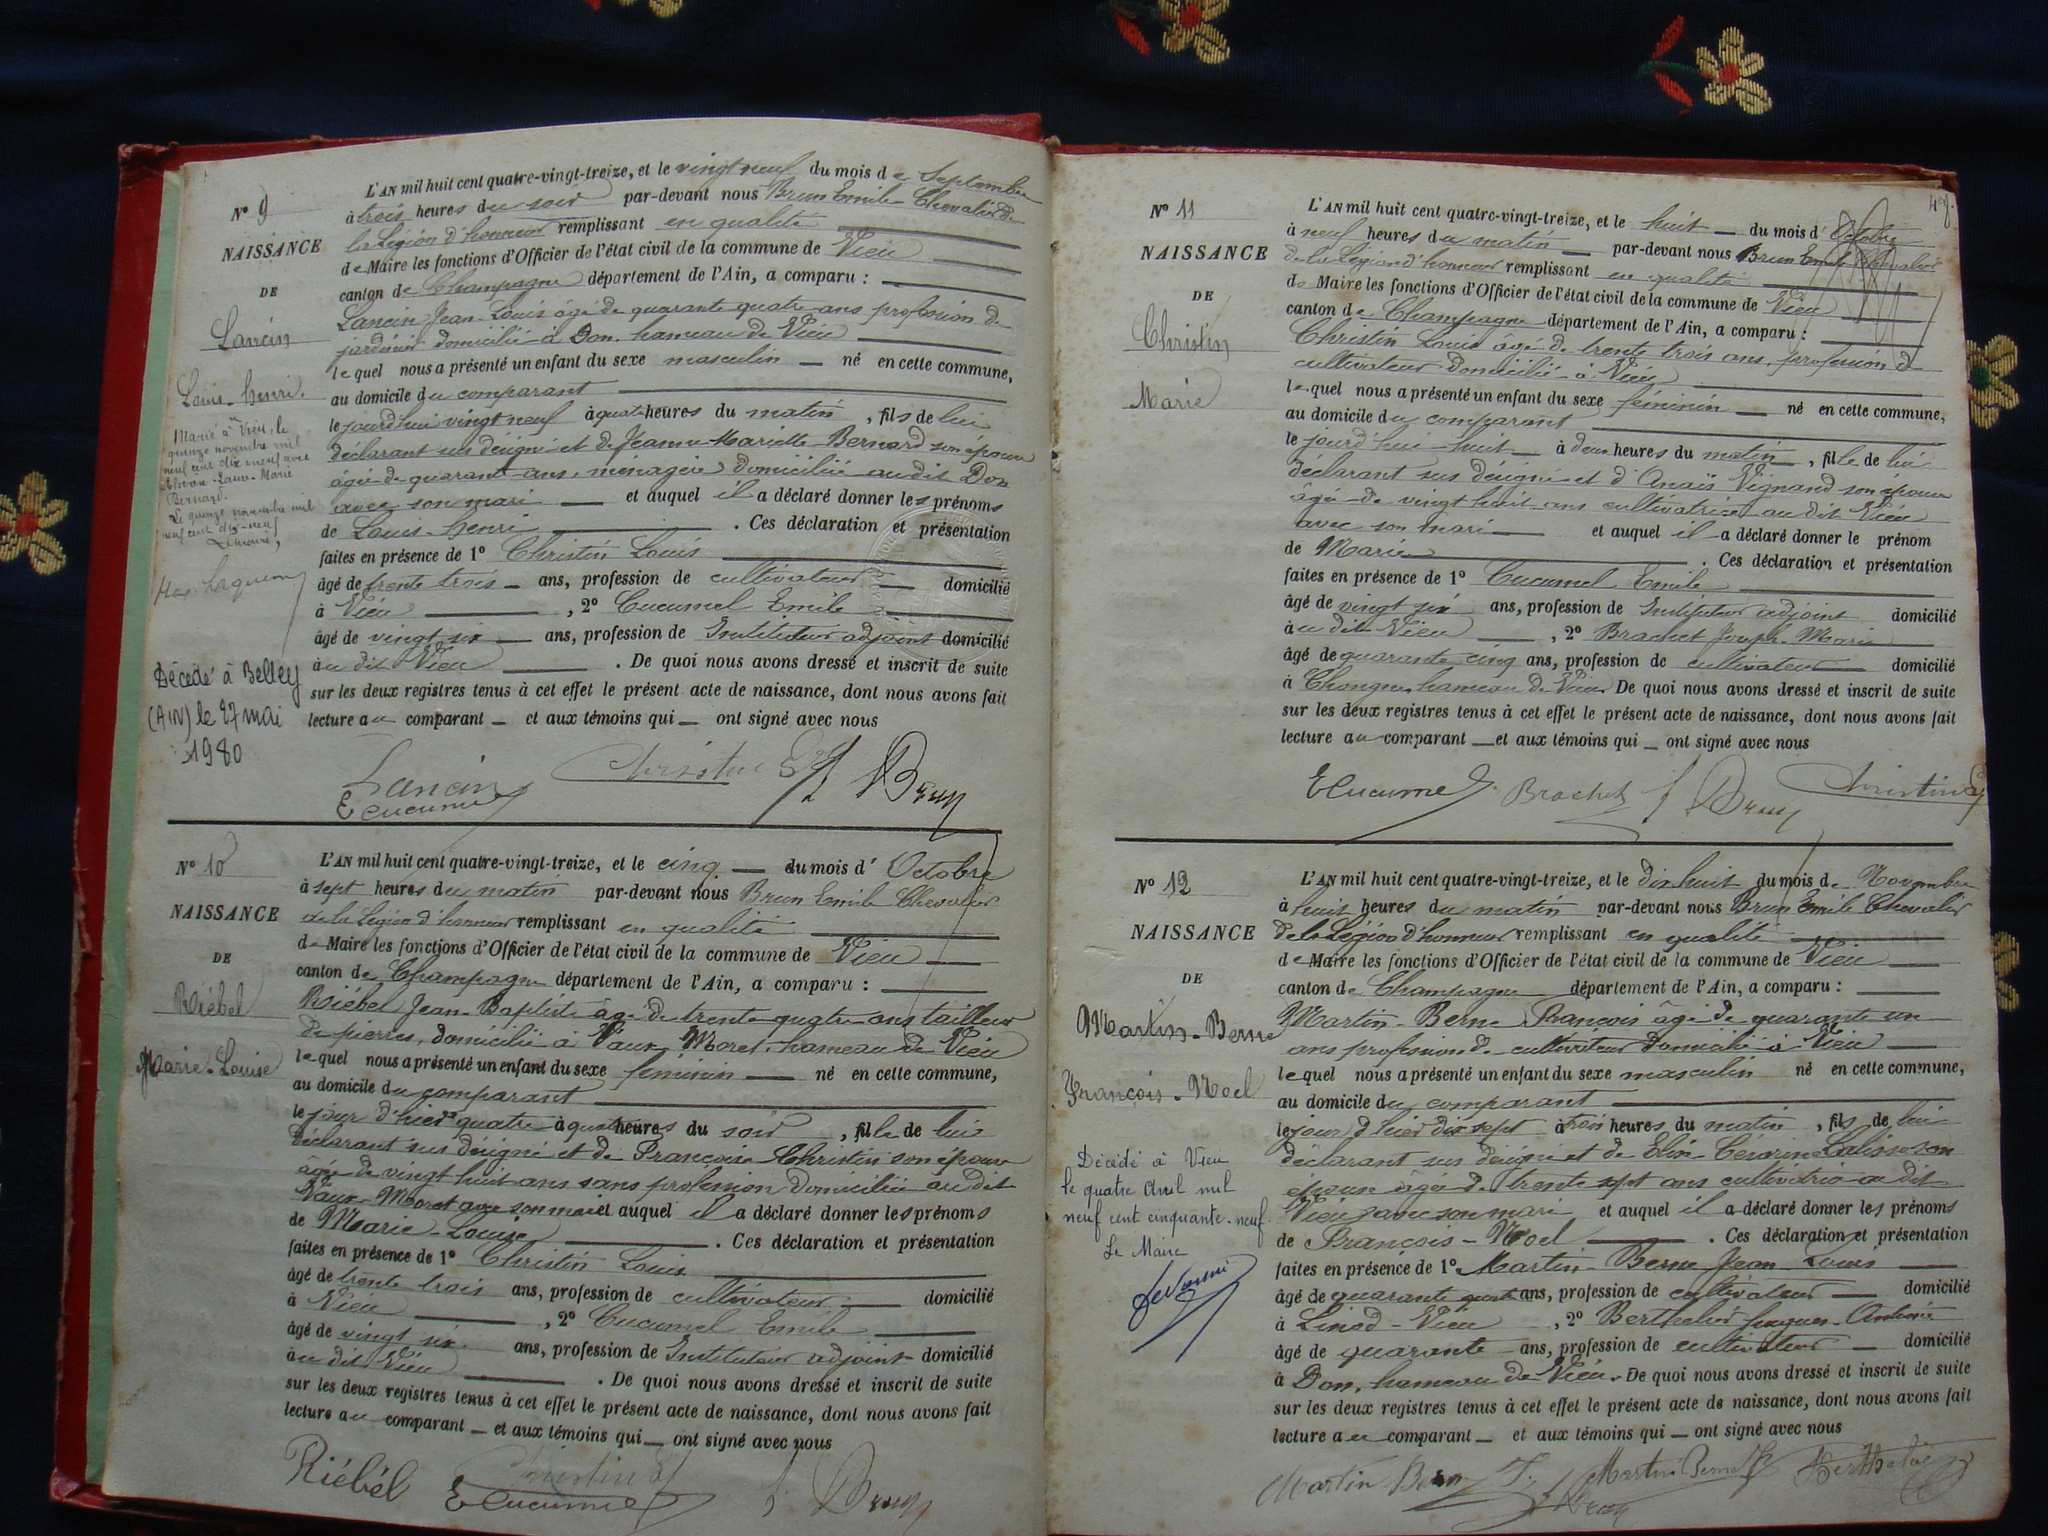 N° 9
NAISSANCE
DE
Lancin
Louis-henri.
Marié à Vieu, le
quinze novembre mil
neuf cent dix neuf avec
Laure-Marie
Bernard.
Le quinze novembre mil
neuf cent dix-neuf
Décédé à Belley
(AIN) le 27 mai
1980
L'AN mil huit cent quatre-vingt-treize, et le vingt neuf du mois de Septembre
à trois heures du soir par-devant nous Brun Emile Chevalier de
la Légion d'honneur remplissant en qualité
de Maire les fonctions d'Officier de l'état civil de la commune de Vieu
canton de Champagne département de l'Ain, a comparu :
Lancin Jean-Louis âgé de quarante quatre ans profession de
jardinier domicilié à Don, hameau de Vieu
lequel nous a présenté un enfant du sexe masculin né en cette commune,
au domicile du comparant
le jourd'hui vingt neuf à quatre heures du matin, fils de lui
déclarant sus désigné et de Jeanne-Mariette Bernard son épouse
âgée de quarante ans, ménagère domiciliée au dit Don
avec son mari et auquel il a déclaré donner les prénoms
de Louis-henri . Ces déclaration et présentation
faites en présence de 1° Christin Louis
âgé de trente trois ans, profession de cultivateur domicilié
à Vieu , 2° Cucumel Emile
âgé de vingt six ans, profession de Instituteur adjoint domicilié
à au dit Vieu . De quoi nous avons dressé et inscrit de suite
sur les deux registres tenus à cet effet le présent acte de naissance, dont nous avons fait
lecture au comparant et aux témoins qui ont signé avec nous
Lancin Christin E. Brun
E Cucumel
N° 10
NAISSANCE
DE
Riébel
Marie-Louise
L'AN mil huit cent quatre-vingt-treize, et le cinq du mois d'Octobre
à sept heures du matin par-devant nous Brun Emile Chevalier
de la Légion d'honneur remplissant en qualité
de Maire les fonctions d'Officier de l'état civil de la commune de Vieu
canton de Champagne département de l'Ain, a comparu :
Riébel Jean-Baptiste âgé de trente quatre ans tailleur
de pierres, domicilié à Vaux-Moret, hameau de Vieu
lequel nous a présenté un enfant du sexe féminin né en cette commune,
au domicile du comparant
le jour d'hier quatre à quatre heures du soir, fille de lui
déclarant sus désigné et de Françoise Christin son épouse
âgée de vingt huit ans sans profession domiciliée au dit
Vaux-Moret avec son mari et auquel il a déclaré donner les prénoms
de Marie-Louise . Ces déclaration et présentation
faites en présence de 1° Christin Louis
âgé de trente trois ans, profession de cultivateur domicilié
à Vieu , 2° Cucumel Emile
âgé de vingt six ans, profession de Instituteur adjoint domicilié
à au dit Vieu . De quoi nous avons dressé et inscrit de suite
sur les deux registres tenus à cet effet le présent acte de naissance, dont nous avons fait
lecture au comparant et aux témoins qui ont signé avec nous
Riébel Christin E Cucumel Brun
N° 11
NAISSANCE
DE
Christin
Marie
L'AN mil huit cent quatre-vingt-treize, et le huit du mois d'Octobre
à neuf heures du matin par-devant nous Brun Emile Chevalier
de la Légion d'honneur remplissant en qualité
de Maire les fonctions d'Officier de l'état civil de la commune de Vieu
canton de Champagne département de l'Ain, a comparu :
Christin Louis âgé de trente trois ans, profession de
cultivateur domicilié à Vieu
lequel nous a présenté un enfant du sexe féminin né en cette commune,
au domicile du comparant
le jourd'hui huit à deux heures du matin, fille de lui
déclarant sus désigné et d'Anaïs Vignand son épouse
âgée de vingt huit ans cultivatrice au dit Vieu
avec son mari et auquel il a déclaré donner le prénom
de Marie . Ces déclaration et présentation
faites en présence de 1° Cucumel Emile
âgé de vingt six ans, profession de Instituteur adjoint domicilié
à au dit Vieu , 2° Brachet Joseph-Marie
âgé de quarante cinq ans, profession de cultivateur domicilié
à Chongnes hameau de Vieu De quoi nous avons dressé et inscrit de suite
sur les deux registres tenus à cet effet le présent acte de naissance, dont nous avons fait
lecture au comparant et aux témoins qui ont signé avec nous
E Cucumel Brachet Brun Christin
N° 12
NAISSANCE
DE
Martin-Berne
François-Noel
Décédé à Vieu
le quatre Avril mil
neuf cent cinquante-neuf.
Le Maire
L'AN mil huit cent quatre-vingt-treize, et le dix huit du mois de Novembre
à huit heures du matin par-devant nous Brun Emile Chevalier
de la Légion d'honneur remplissant en qualité
de Maire les fonctions d'Officier de l'état civil de la commune de Vieu
canton de Champagne département de l'Ain, a comparu :
Martin-Berne François âgé de quarante un
ans profession de cultivateur domicilié à Vieu
lequel nous a présenté un enfant du sexe masculin né en cette commune,
au domicile du comparant
le jour d'hier dix sept à trois heures du matin, fils de lui
déclarant sus désigné et de Lalisse son
épouse âgée de trente sept ans cultivatrice au dit
Vieu avec son mari et auquel il a déclaré donner les prénoms
de François-Noel . Ces déclaration et présentation
faites en présence de 1° Martin-Berne Jean-Louis
âgé de quarante quatre ans, profession de cultivateur domicilié
à Linod-Vieu , 2° Berthelier Jacques-Antoine
âgé de quarante ans, profession de cultivateur domicilié
à Don, hameau de Vieu. De quoi nous avons dressé et inscrit de suite
sur les deux registres tenus à cet effet le présent acte de naissance, dont nous avons fait
lecture au comparant et aux témoins qui ont signé avec nous
Martin Berne Martin Berne Berthelier
Brun